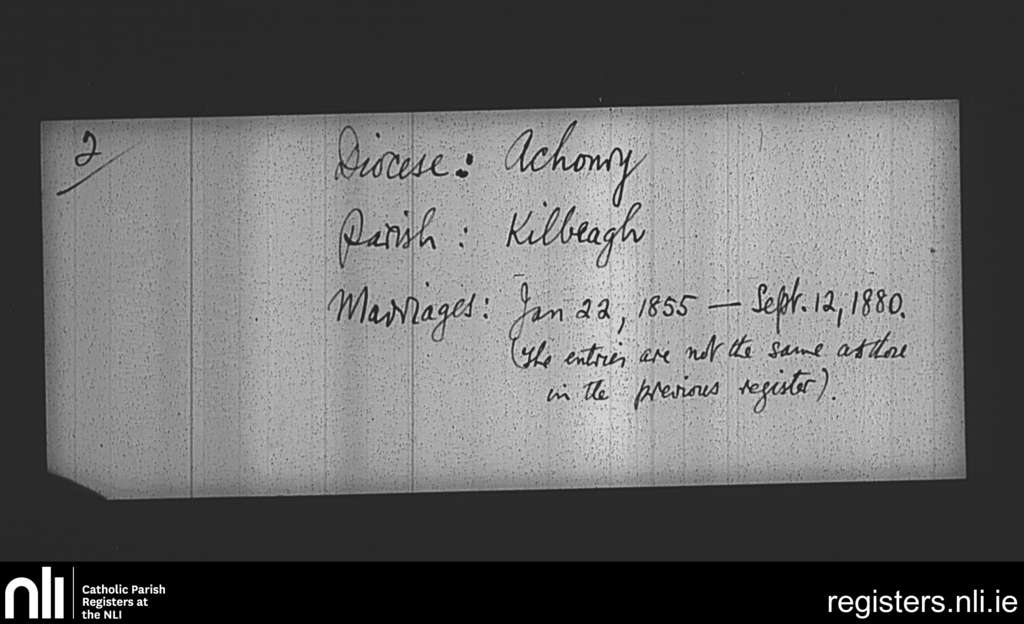 2
Diocese: Achonry
Parish: Kilbeagh
Marriages: Jan 22, 1855 — Sept. 12, 1880.
(The entries are not the same as those
in the previous register).
nli
Catholic Parish
Registers at
the NLI
registers.nli.ie